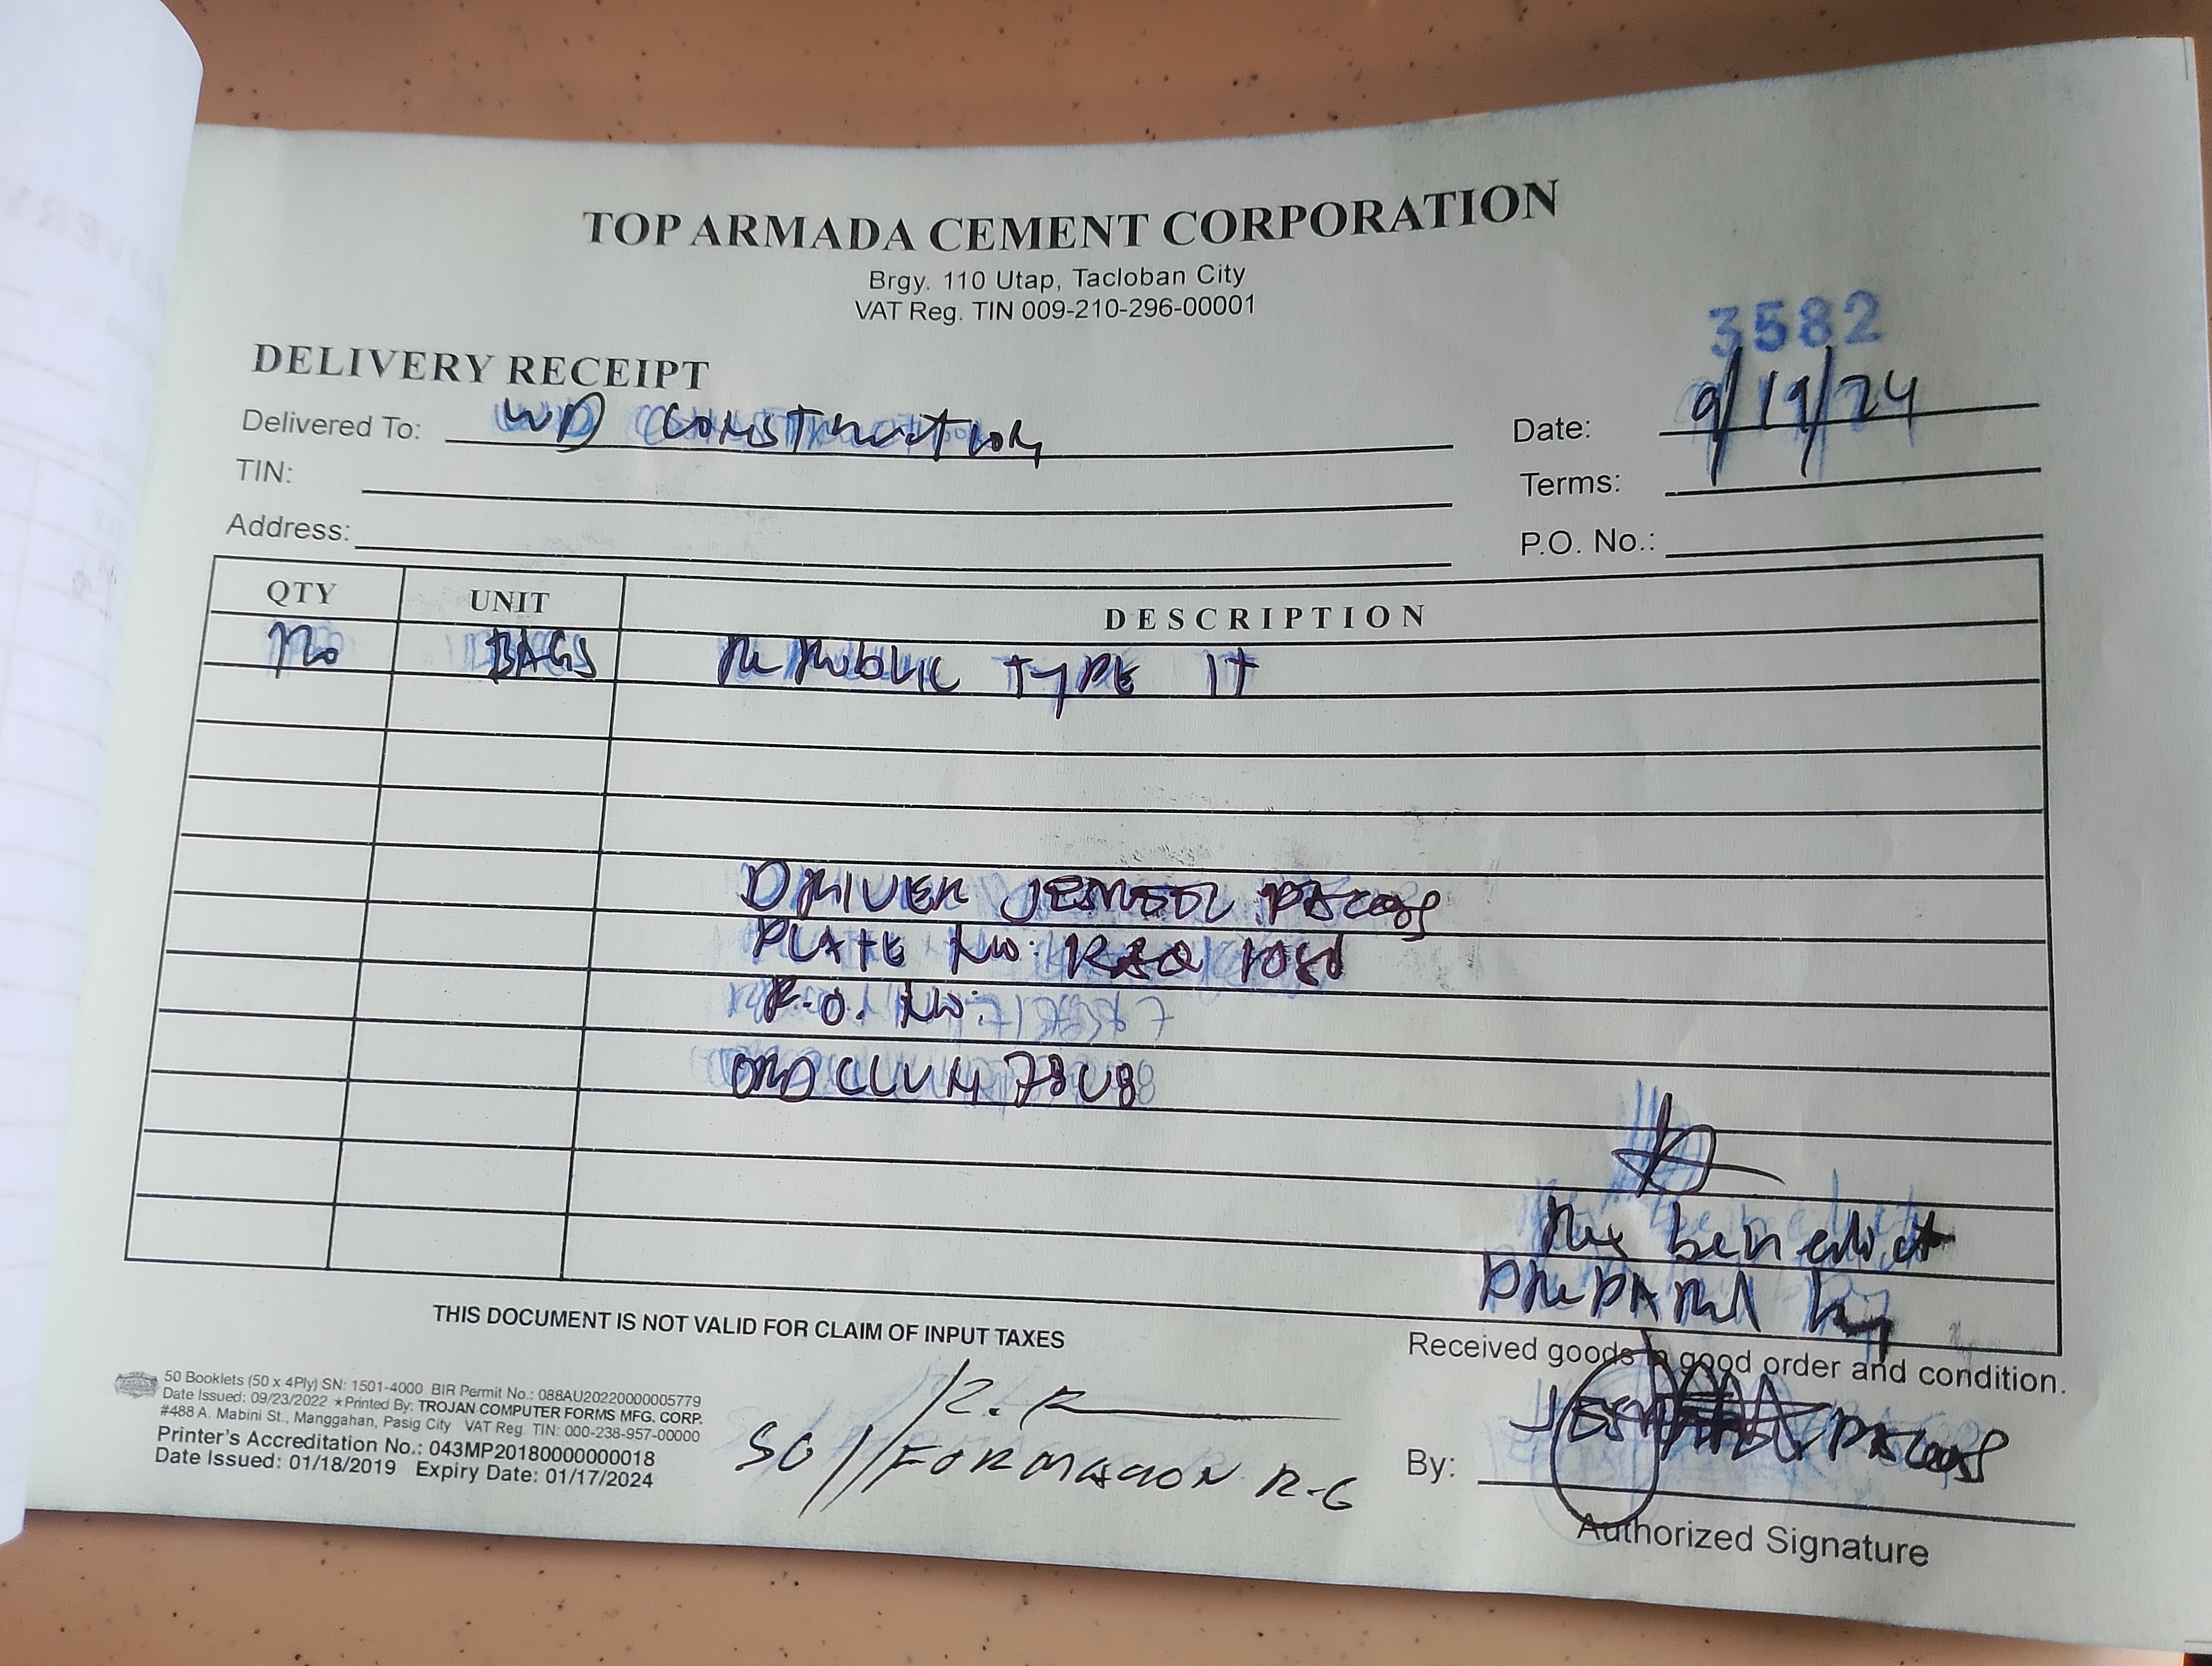 TOP ARMADA CEMENT CORPORATION
Brgy. 110 Utap, Tacloban City
VAT Reg. TIN 009-210-296-00001
3582
DELIVERY RECEIPT
Delivered To: WD CONSTRUCTION
Date: 9/19/24
TIN:
Terms:
Address:
P.O. No.:
QTY UNIT DESCRIPTION
BAGS REPUBLIC TYPE 1T
DRIVER
PLATE NO:
P.O. NO:
Rex benedict
PREPARED by
THIS DOCUMENT IS NOT VALID FOR CLAIM OF INPUT TAXES
Received goods in good order and condition.
50 Booklets (50 x 4Ply) SN: 1501-4000 BIR Permit No.: 088AU20220000005779
Date Issued: 09/23/2022 ★Printed By: TROJAN COMPUTER FORMS MFG. CORP.
#488 A. Mabini St., Manggahan, Pasig City VAT Reg. TIN: 000-238-957-00000
Printer's Accreditation No.: 043MP20180000000018
Date Issued: 01/18/2019 Expiry Date: 01/17/2024
SG // FORMACION R-G
By:
Authorized Signature